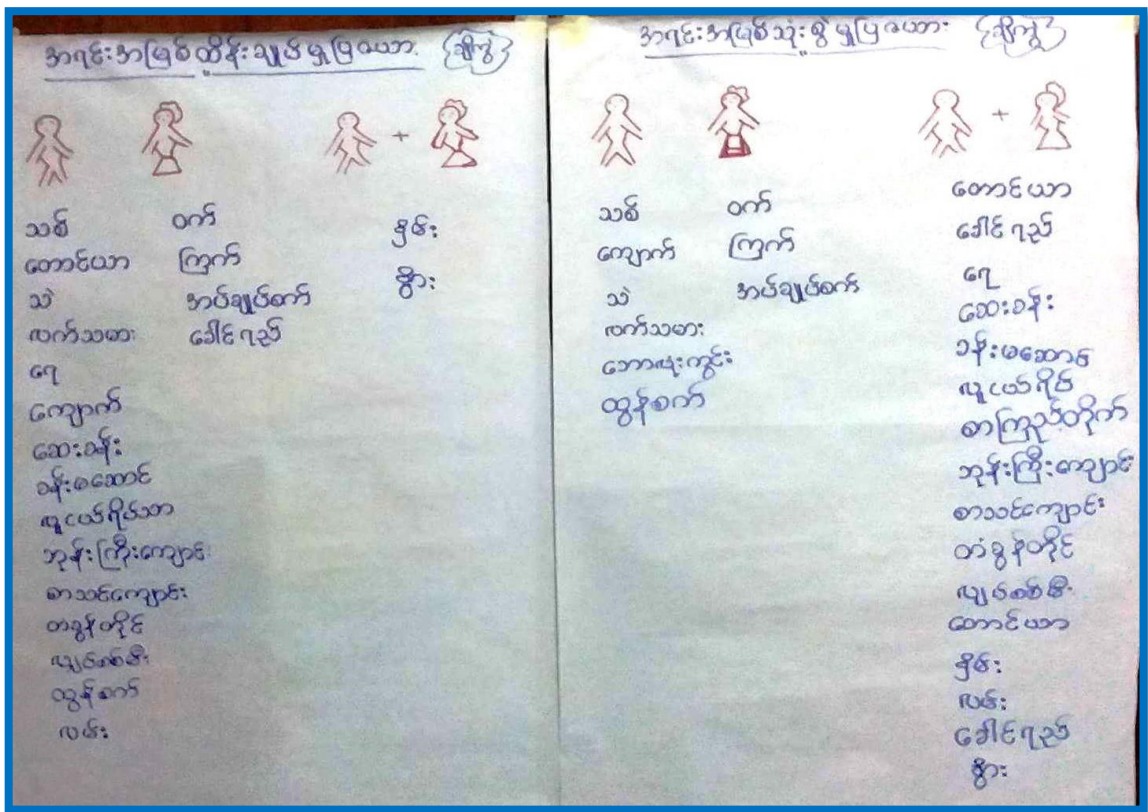 အရင်းအမြစ်ထိန်းချုပ်မှုပြဇယား {ချီကွဲ}
သစ်
တောင်ယာ
သဲ
လက်သမား
ရေ
ကျောက်
ဆေးခန်း
ခန်းမဆောင်
လူငယ်ရိပ်သာ
ဘုန်းကြီးကျောင်း
စာသင်ကျောင်း
တံခွန်တိုင်
လျှပ်စစ်မီး
ထွန်စက်
လမ်း
ဝက်
ကြက်
အပ်ချုပ်စက်
ခေါင်ရည်
နှမ်း
နွား
အရင်းအမြစ်သုံးစွဲမှုပြဇယား {ချီကွဲ}
သစ်
ကျောက်
သဲ
လက်သမား
ဘောလုံးကွင်း
ထွန်စက်
ဝက်
ကြက်
အပ်ချုပ်စက်
တောင်ယာ
ခေါင်ရည်
ရေ
ဆေးခန်း
ခန်းမဆောင်
လူငယ်ရိပ်
စာကြည့်တိုက်
ဘုန်းကြီးကျောင်း
စာသင်ကျောင်း
တံခွန်တိုင်
လျှပ်စစ်မီး
တောင်ယာ
နှမ်း
လမ်း
ခေါင်ရည်
နွား